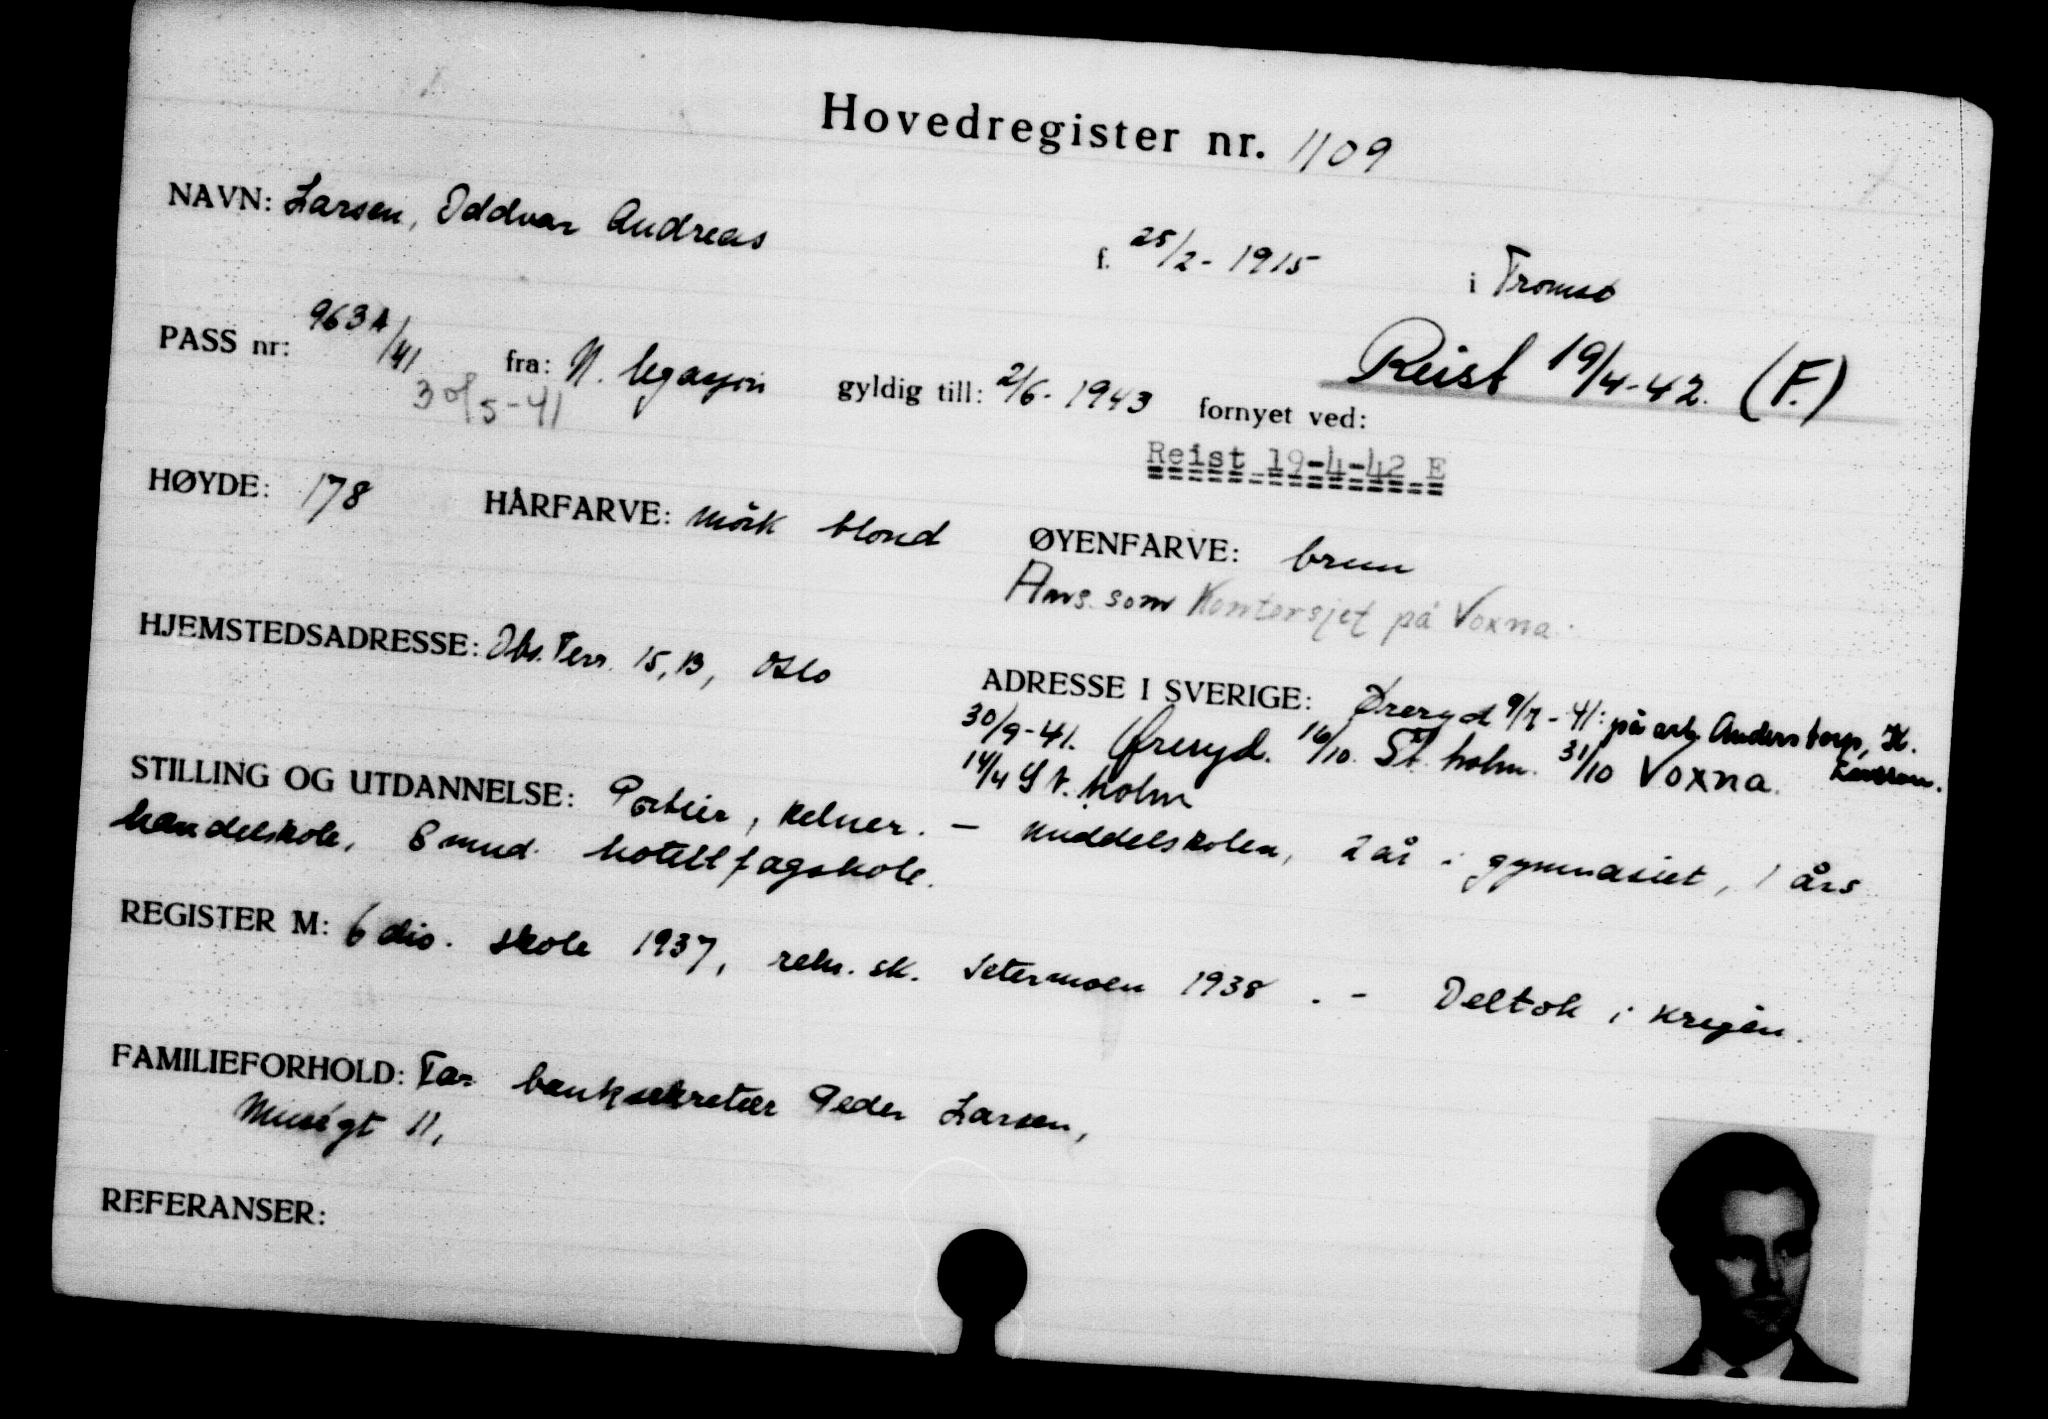 Hovedregister nr. 1109
NAVN: Larsen, Oddvar Andreas f. 25/2 - 1915 i Tromsø
PASS nr: 963A/41 fra: N. legasjon gyldig till: 2/6 - 1943 fornyet ved: Reist 19/4-42. (F.)
30/5-41
Reist 19-4-42 E
HØYDE: 178 HÅRFARVE: mörk blond ØYENFARVE: brun
Ans. som Kontorsjef på Voxna.
HJEMSTEDSADRESSE: Obs. Terr. 15, B, Oslo ADRESSE I SVERIGE: Øreryd 9/7-41: på arb. Anderstorp, K. Larsson.
30/9-41. Øreryd. 16/10. St.holm. 31/10 Voxna.
14/4 St.holm
STILLING OG UTDANNELSE: Portier, kelner. - Middelskolen, 2 år i gymnasiet, 1 års
handelskole, 8 mnd. hotellfagskole.
REGISTER M: 6 div. skole 1937, rekr. sk. Setermoen 1938. - Deltok i krigen.
FAMILIEFORHOLD: Far banksekretær Peder Larsen,
11,
REFERANSER: